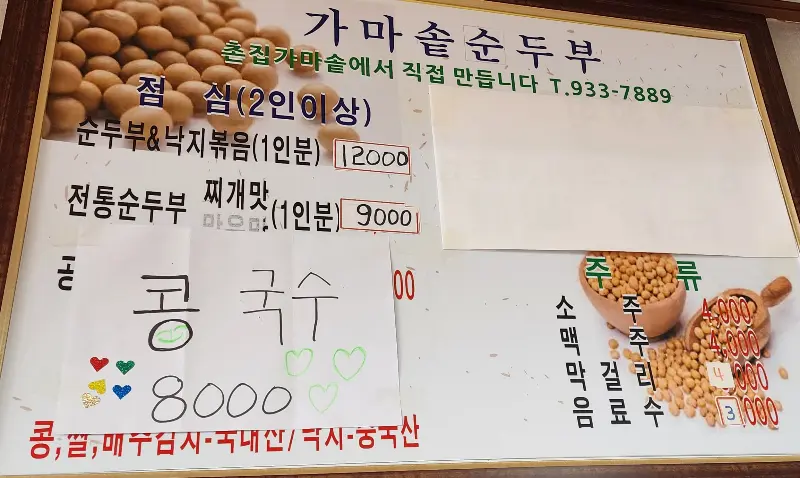 가마솥순두부
촌집가마솥에서 직접 만듭니다 T.933-7889
점 심(2인이상)
순두부&낙지볶음(1인분) 12000
전통순두부 찌개맛 (1인분) 9000
콩 국수
8000
00
콩,쌀,배추김치-국내산/낙지-중국산
주 류
소 주 4,000
맥 주 4,000
막 걸 리 4,000
음 료 수 3,000